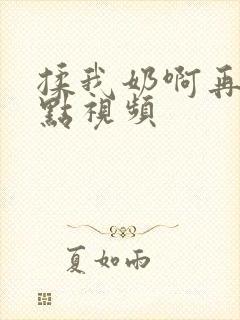 揉我奶啊再
點視頻
夏如雨